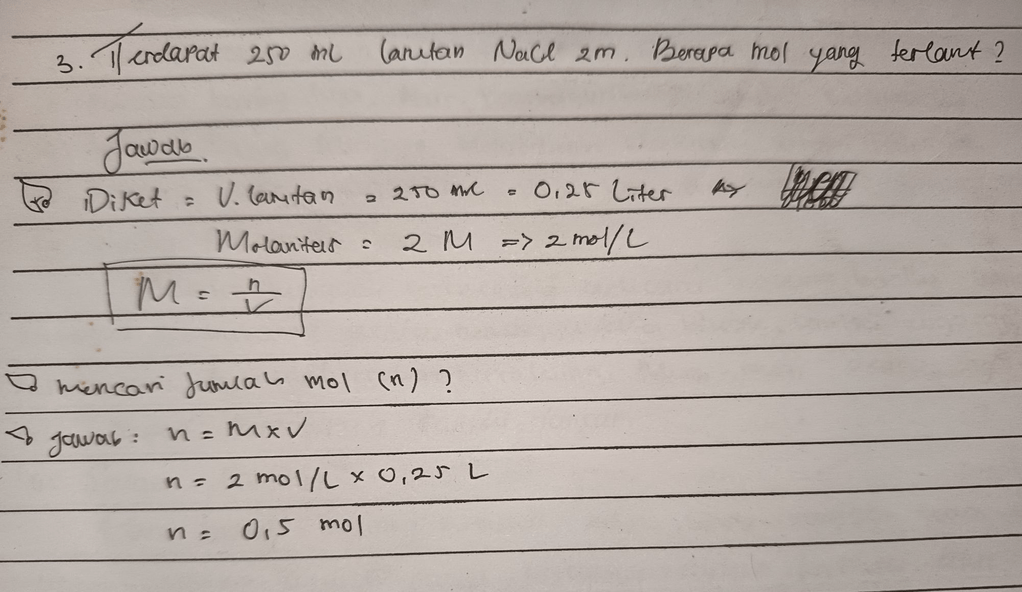 3. Terdapat 250 ml larutan NaCl 2m. Berapa mol yang terlarut?
Jawab
Diket = V. larutan = 250 ml = 0,25 Liter
Molaritas = 2 M => 2 mol/L
M = n/V
mencari Jumlah mol (n) ?
Jawab : n = M x V
n = 2 mol/L x 0,25 L
n = 0,5 mol